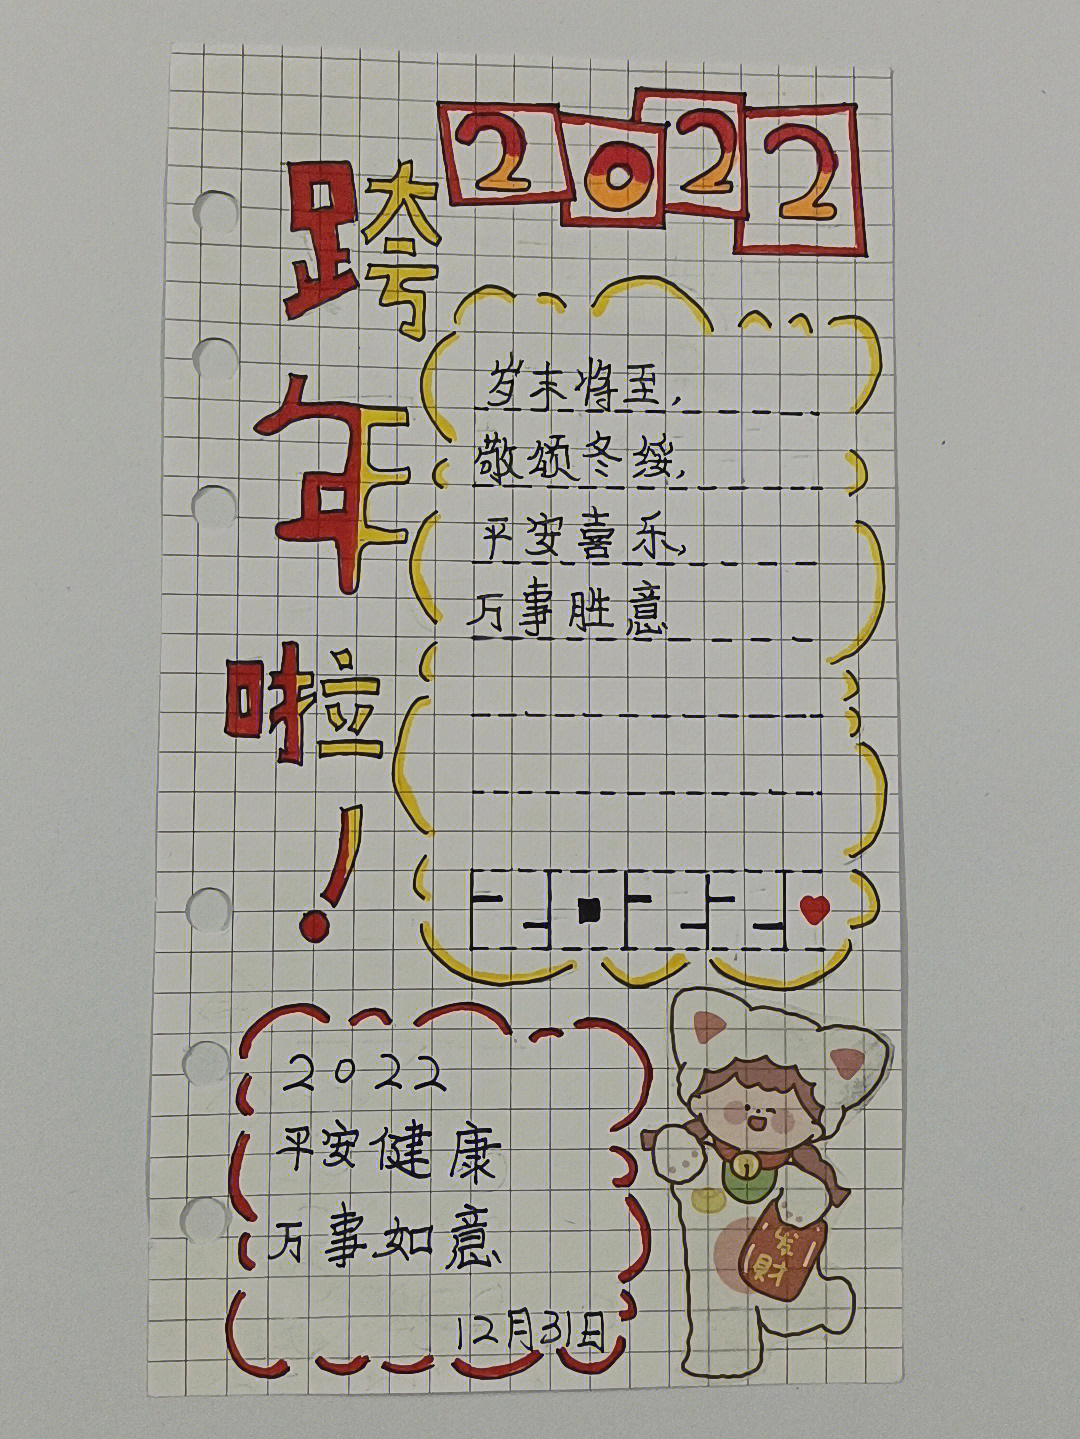 2022
跨年啦!
岁末将至,
敬颂冬绥,
平安喜乐,
万事胜意
2022
平安健康
万事如意
12月31日
发財